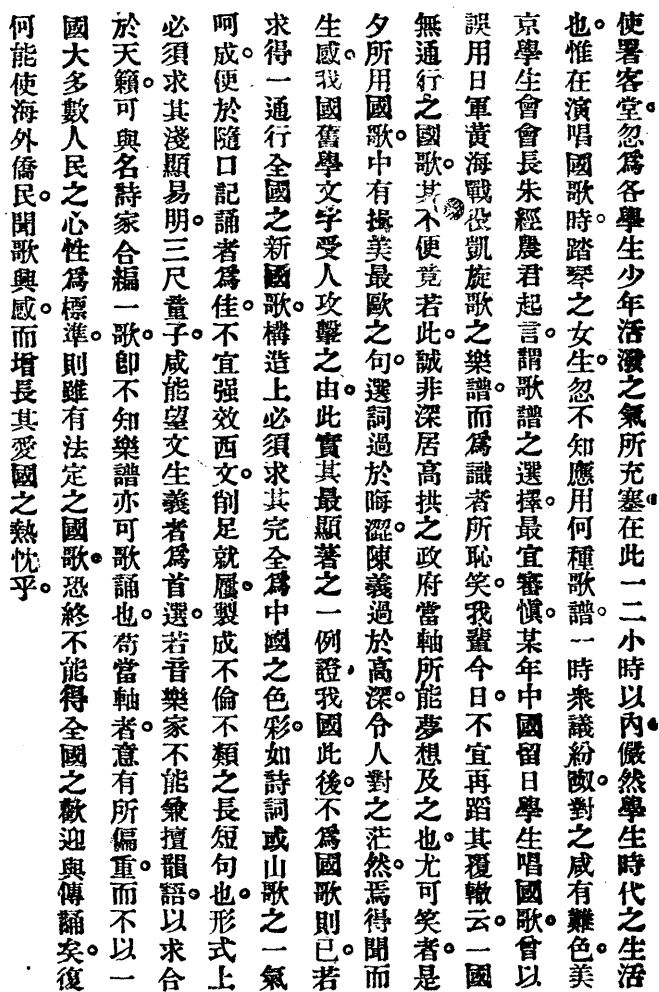 使署客堂。忽爲各學生少年活潑之氣所充塞。在此一二小時以內。儼然學生時代之生活
也。惟在演唱國歌時。踏琴之女生。忽不知應用何種歌譜。一時衆議紛呶。對之咸有難色。美
京學生會會長朱經農君起言。謂歌譜之選擇。最宜審愼。某年中國留日學生唱國歌。曾以
誤用日軍黃海戰役凱旋歌之樂譜。而爲識者所恥笑。我輩今日。不宜再蹈其覆轍云。一國
無通行之國歌。其不便竟若此。誠非深居高拱之政府當軸所能夢想及之也。尤可笑者。是
夕所用國歌。中有揖美最歐之句。選詞過於晦澀。陳義過於高深。令人對之茫然。焉得聞而
生感。我國舊學文字受人攻擊之由。此實其最顯著之一例證。我國此後。不爲國歌則已。若
求得一通行全國之新國歌。構造上必須求其完全爲中國之色彩。如詩詞或山歌之一氣
呵成。便於隨口記誦者爲佳。不宜强效西文。削足就履。製成不倫不類之長短句也。形式上
必須求其淺顯易明。三尺童子。咸能望文生義者爲首選。若音樂家不能兼擅韻語。以求合
於天籟。可與名詩家合編一歌。卽不知樂譜亦可歌誦也。苟當軸者。意有所偏重。而不以一
國大多數人民之心性爲標準。則雖有法定之國歌。恐終不能得全國之歡迎與傳誦矣。復
何能使海外僑民。聞歌興感。而增長其愛國之熱忱乎。